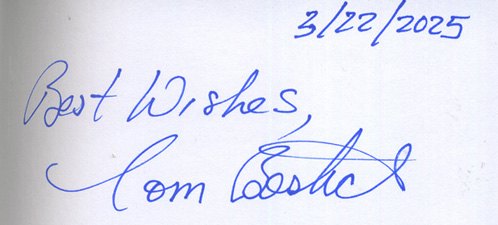 3/22/2025
Best Wishes,
Tom